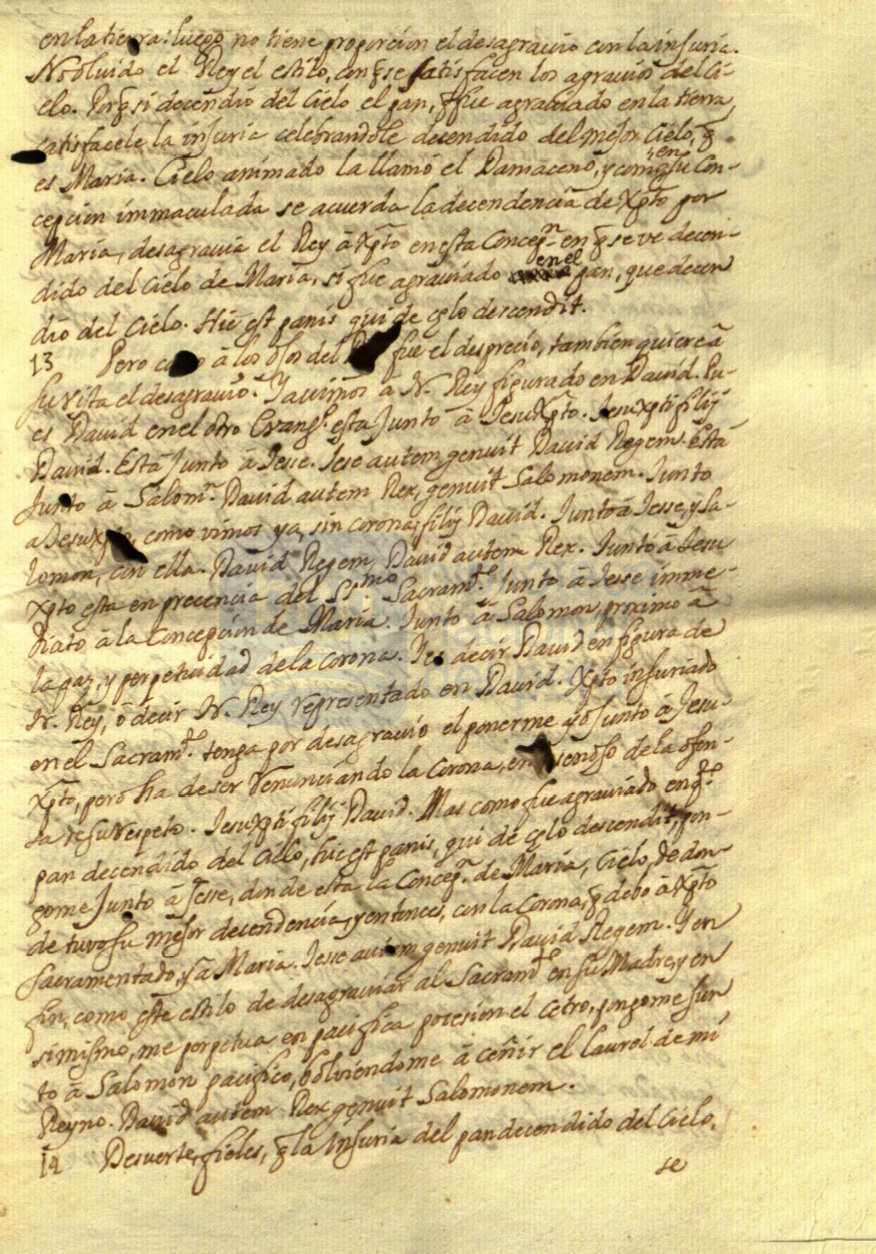 en la tierra: luego no tiene proporcion el desagravio con la injuria.
No olvido el Rey el estilo, con q̃ se satisfacen los agravios del Ci-
elo. Porq̃ si decendio del Cielo el pan, q̃ fue agraviado en la tierra,
satisfacele la injuria celebrandole decendido del mejor Cielo, q̃
es Maria. Cielo animado la llamó el Damaceno, y como en su Con-
cepcion immaculada se acuerda la decendencia de Xpto por
Maria, desagravia el Rey â Xpto en esta Concepn. en q̃ se ve decen-
dido del Cielo de Maria, si fue agraviado en el pan, que decen
dio del Cielo. Hic est panis qui de cęlo descendit.
13 Pero â los ojos del fue el desprecio, tambien quiere â
su vista el desagravio. Ya vimos â N. Rey figurado en David. Pu-
es David en el otro Evangl. esta Junto â Jesuxpto. Jesuxpti filij
David. Está Junto â Jesse. Jese autem genuit David Regem. Está
Junto â Salomn. David autem Rex, genuit Salomonem. Junto
a Jesuxpto, como vimos ya, sin corona, filij David. Junto â Jesse, y Sa-
lomon, con ella. David Regem, David autem Rex. Junto â Jesu
xpto esta en precencia del Ssmo. Sacramto. Junto â Jesse imme-
diato â la Concepcion de Maria. Junto â Salomon, proximo â
la paz, y perpetuidad de la corona. decir David en figura de
N. Rey, ô decir N. Rey representado en David. Xpto injuriado
en el Sacramto. tenga por desagravio el ponerme yo Junto â Jesu-
xpto, pero ha de ser renunciando la corona, en de la ofen-
sa de su respeto. Jesuxpti filij David. Mas como fue agraviado en qto.
pan decendido del Cielo, hic est panis, qui de cęlo descendit, pon-
gome Junto â Jesse, donde esta la Concepn. de Maria, Cielo, de don-
de tuvo su mejor decendencia, y entonces, con la Corona, q̃ debo â Xpto
sacramentado, y â Maria. Jesse autem genuit David Regem. Y en
fin, como este estilo de desagraviar al Sacramto. en su Madre, y en
si mismo, me perpetua en pacifica posesion el cetro, pongome Jun
to â Salomon pacifico, bolviendome â ceñir el laurel de mi
Reyno. David autem Rex genuit Salomonem.
14 De suerte, fieles, q̃ la Injuria del pan decendido del Cielo,
se